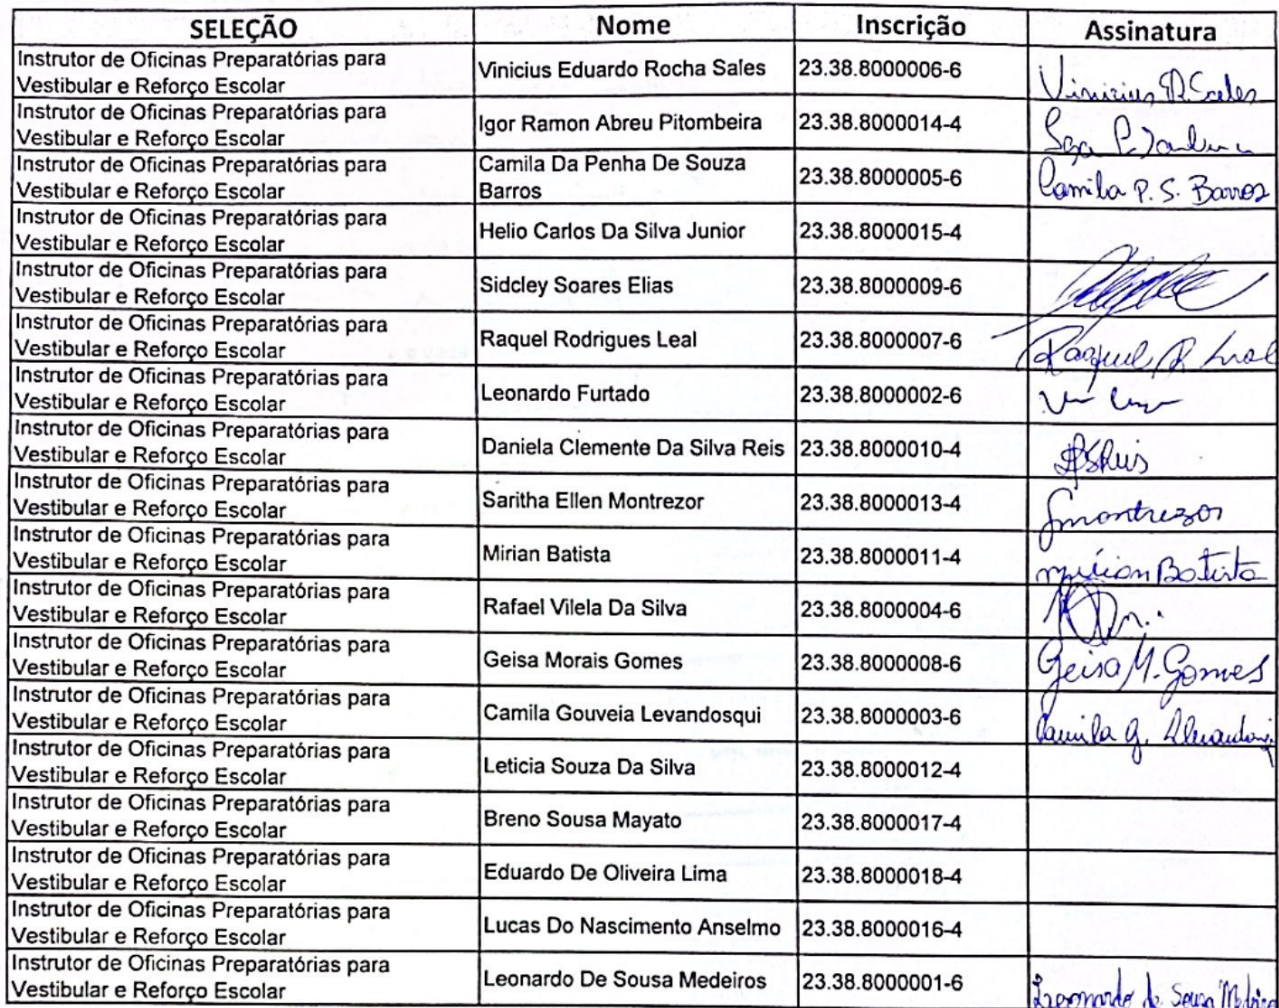 SELEÇÃO Nome Inscrição Assinatura
Instrutor de Oficinas Preparatórias para
Vestibular e Reforço Escolar
Vinicius Eduardo Rocha Sales 23.38.8000006-6 Vinicius R. Sales
Instrutor de Oficinas Preparatórias para
Vestibular e Reforço Escolar
Igor Ramon Abreu Pitombeira 23.38.8000014-4
Instrutor de Oficinas Preparatórias para
Vestibular e Reforço Escolar
Camila Da Penha De Souza
Barros
23.38.8000005-6 Camila P. S. Barros
Instrutor de Oficinas Preparatórias para
Vestibular e Reforço Escolar
Helio Carlos Da Silva Junior 23.38.8000015-4
Instrutor de Oficinas Preparatórias para
Vestibular e Reforço Escolar
Sidcley Soares Elias 23.38.8000009-6
Instrutor de Oficinas Preparatórias para
Vestibular e Reforço Escolar
Raquel Rodrigues Leal 23.38.8000007-6 Raquel R Leal
Instrutor de Oficinas Preparatórias para
Vestibular e Reforço Escolar
Leonardo Furtado 23.38.8000002-6
Instrutor de Oficinas Preparatórias para
Vestibular e Reforço Escolar
Daniela Clemente Da Silva Reis 23.38.8000010-4
Instrutor de Oficinas Preparatórias para
Vestibular e Reforço Escolar
Saritha Ellen Montrezor 23.38.8000013-4 Smontrezor
Instrutor de Oficinas Preparatórias para
Vestibular e Reforço Escolar
Mirian Batista 23.38.8000011-4 Mirian Batista
Instrutor de Oficinas Preparatórias para
Vestibular e Reforço Escolar
Rafael Vilela Da Silva 23.38.8000004-6
Instrutor de Oficinas Preparatórias para
Vestibular e Reforço Escolar
Geisa Morais Gomes 23.38.8000008-6 Geisa M. Gomes
Instrutor de Oficinas Preparatórias para
Vestibular e Reforço Escolar
Camila Gouveia Levandosqui 23.38.8000003-6 Camila G.
Instrutor de Oficinas Preparatórias para
Vestibular e Reforço Escolar
Leticia Souza Da Silva 23.38.8000012-4
Instrutor de Oficinas Preparatórias para
Vestibular e Reforço Escolar
Breno Sousa Mayato 23.38.8000017-4
Instrutor de Oficinas Preparatórias para
Vestibular e Reforço Escolar
Eduardo De Oliveira Lima 23.38.8000018-4
Instrutor de Oficinas Preparatórias para
Vestibular e Reforço Escolar
Lucas Do Nascimento Anselmo 23.38.8000016-4
Instrutor de Oficinas Preparatórias para
Vestibular e Reforço Escolar
Leonardo De Sousa Medeiros 23.38.8000001-6 Leonardo de Sousa